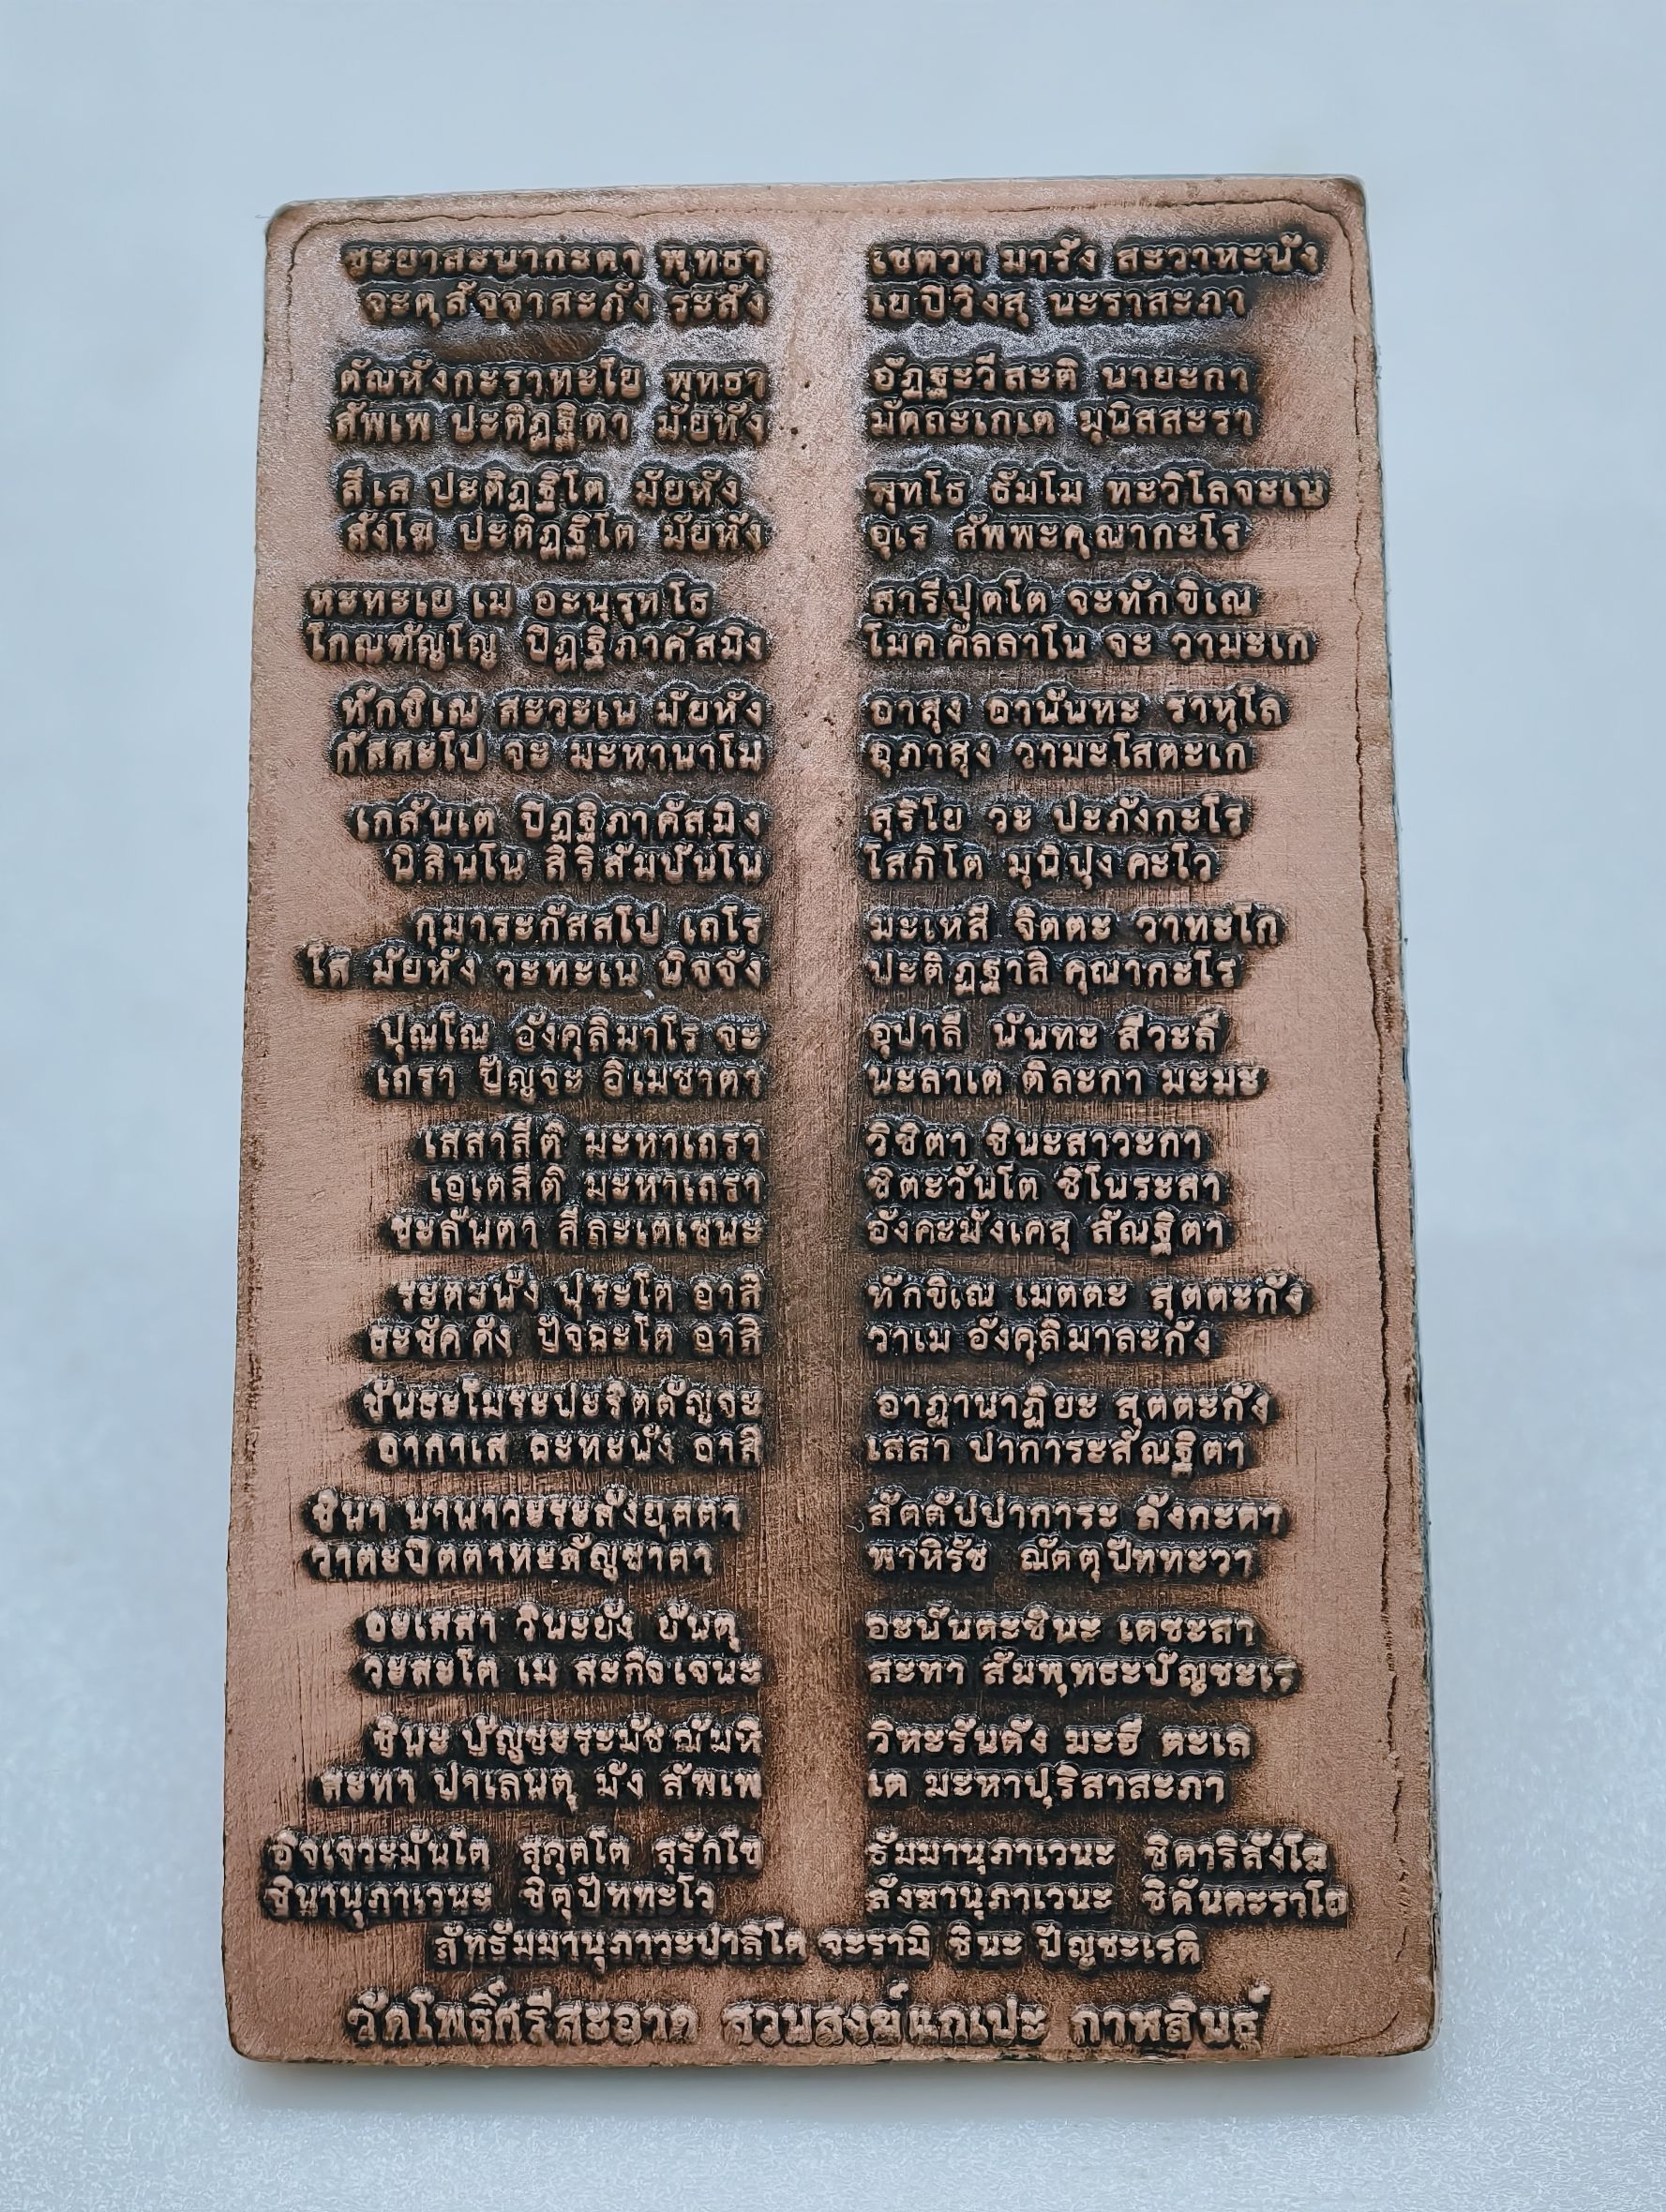 ชะยาสะนากะตา พุทธา เชตวา มารัง สะวาหะนัง
จะตุสัจจาสะภัง ระสัง เย ปิวิงสุ นะราสะภา
ตัณหังกะราทะโย พุทธา อัฏฐะวีสะติ นายะกา
สัพเพ ปะติฏฐิตา มัยหัง มัตถะเกเต มุนิสสะรา
สีเส ปะติฏฐิโต มัยหัง พุทโธ ธัมโม ทะวิโลจะเน
สังโฆ ปะติฏฐิโต มัยหัง อุเร สัพพะคุณากะโร
หะทะเย เม อะนุรุทโธ สารีปุตโต จะทักขิเณ
โกณฑัญโญ ปิฏฐิภาคัสมิง โมคคัลลาโน จะ วามะเก
ทักขิเณ สะวะเน มัยหัง อาสุง อานันทะ ราหุโล
กัสสะโป จะ มะหานาโม อุภาสุง วามะโสตะเก
เกสันเต ปิฏฐิภาคัสมิง สุริโย วะ ปะภังกะโร
นิสินโน สิริสัมปันโน โสภิโต มุนิปุง คะโว
กุมาระกัสสโป เถโร มะเหสี จิตตะ วาทะโก
โส มัยหัง วะทะเน นิจจัง ปะติฏฐาสิ คุณากะโร
ปุณโณ อังคุลิมาโร จะ อุปาลี นันทะ สีวะลี
เถรา ปัญจะ อิเมชาตา นะลาเต ติละกา มะมะ
เสสาสีติ มะหาเถรา วิชิตา ชินะสาวะกา
เอเตสีติ มะหาเถรา ชิตะวันโต ชิโนระสา
ชะลันตา สีละเตเชนะ อังคะมังเคสุ สัณฐิตา
ระตะนัง ปุระโต อาสิ ทักขิเณ เมตตะ สุตตะกัง
ธะชัคคัง ปัจฉะโต อาสิ วาเม อังคุลิมาละกัง
ขันธะโมระปะริตตัญจะ อาฏานาฏิยะ สุตตะกัง
อากาเส ฉะทะนัง อาสิ เสสา ปาการะสัณฐิตา
ชินา นานาวะระสังยุตตา สัตตัปปาการะ ลังกะตา
วาตะปิตตาทะสัญชาตา พาหิรัช ฌัตตุปัททะวา
อะเสสา วินะยัง ยันตุ อะนันตะชินะ เตชะสา
วะสะโต เม สะกิจเจนะ สะทา สัมพุทธะปัญชะเร
ชินะ ปัญชะระมัช ฌัมหิ วิหะรันตัง มะฮี ตะเล
สะทา ปาเลนตุ มัง สัพเพ เต มะหาปุริสาสะภา
อิจเจวะมันโต สุคุตโต สุรักโข ธัมมานุภาเวนะ ชิตาริสังโฆ
ชินานุภาเวนะ ชิตุปัททะโว สังฆานุภาเวนะ ชิตันตะราโย
สัทธัมมานุภาวะปาลิโต จะรามิ ชินะ ปัญชะเรติ
วัดโพธิ์ศรีสะอาด สวนสงฆ์แกเปะ กาฬสินธุ์